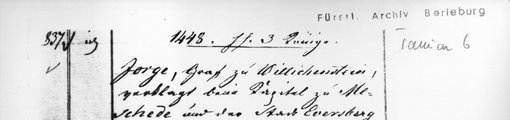 Fürstl. Archiv Berleburg
837
1448. hl. 3 Könige.
Januar 6
Jorge, Graf zu Willichenstein,
verklagt beim Kapitel zu Me-
schede und der Stadt Eversberg